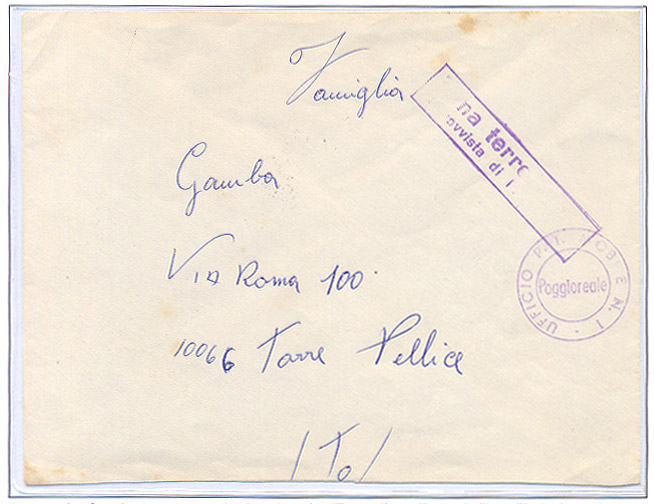 Famiglia
Gamba
Via Roma 100
10066 Torre Pellice
/To/
na terre
ovvista di
UFFICIO P.T. MOBILE N. 1
Poggioreale